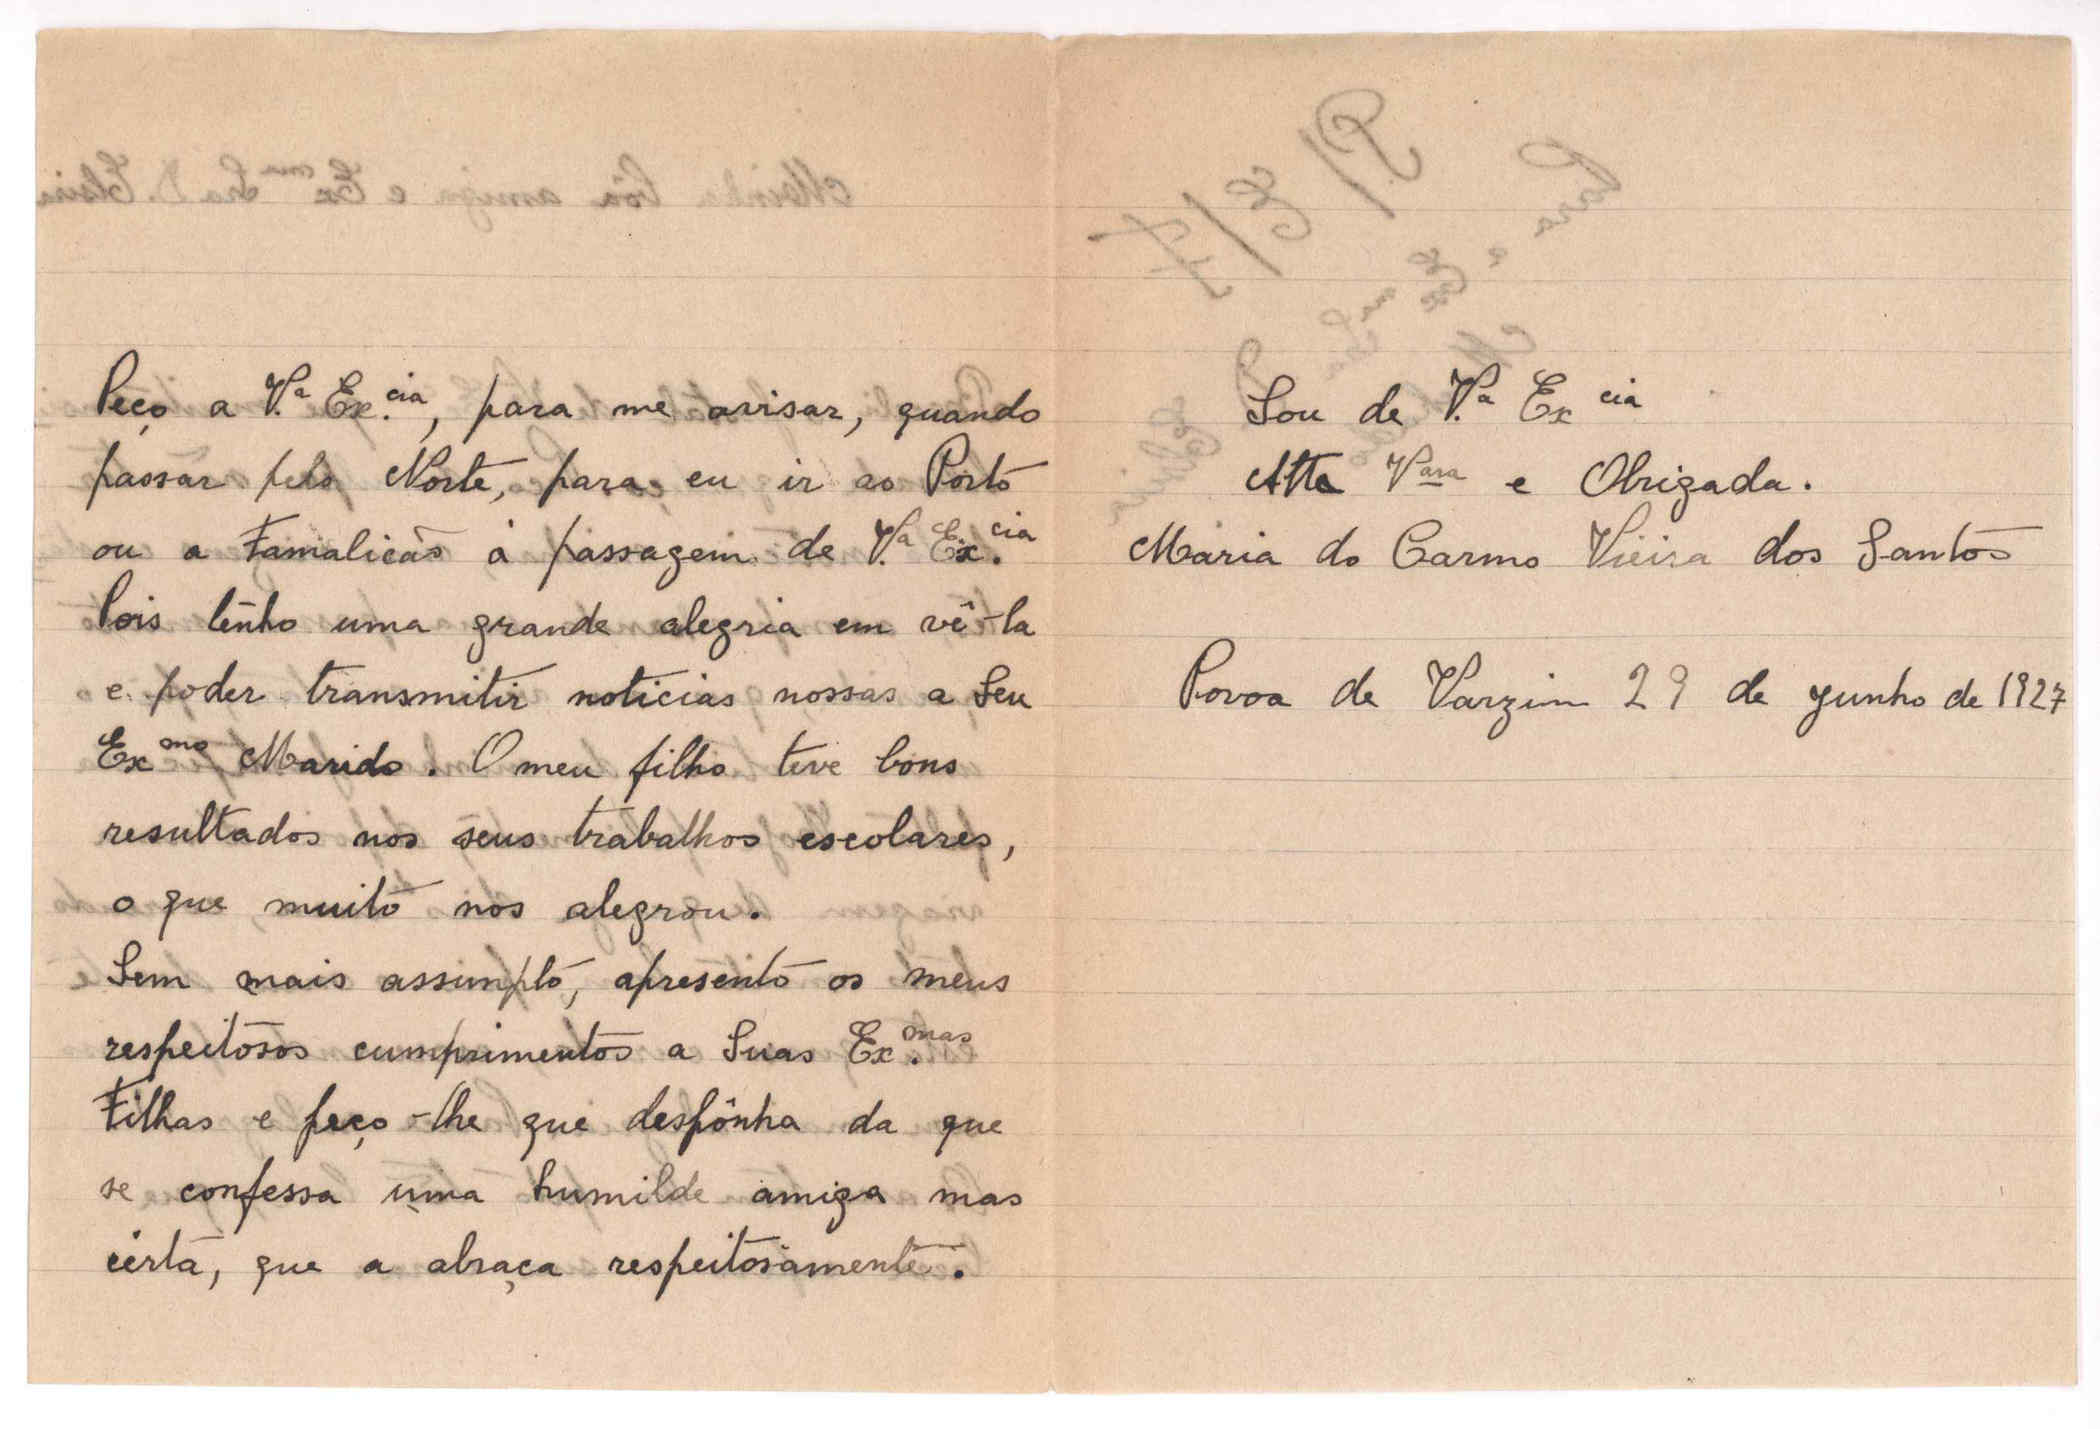 Peço a V.ª Ex.cia, para me avisar, quando
passar pelo Norte, para eu ir ao Porto
ou a Famalicão á passagem de V.ª Ex.cia
Pois tenho uma grande alegria em vê-la
e poder transmitir noticias nossas a Seu
Exmo Marido. O meu filho teve bons
resultados nos seus trabalhos escolares,
o que muito nos alegrou.
Sem mais assumpto, apresento os meus
respeitosos cumprimentos a Suas Ex.mas
Filhas e peço-lhe que despônha da que
se confessa uma humilde amiga mas
certa, que a abraça respeitosamente.
Sou de V.ª Excia
Atta Vara e Obrigada.
Maria do Carmo Vieira dos Santos
Povoa de Varzim 29 de Junho de 1927